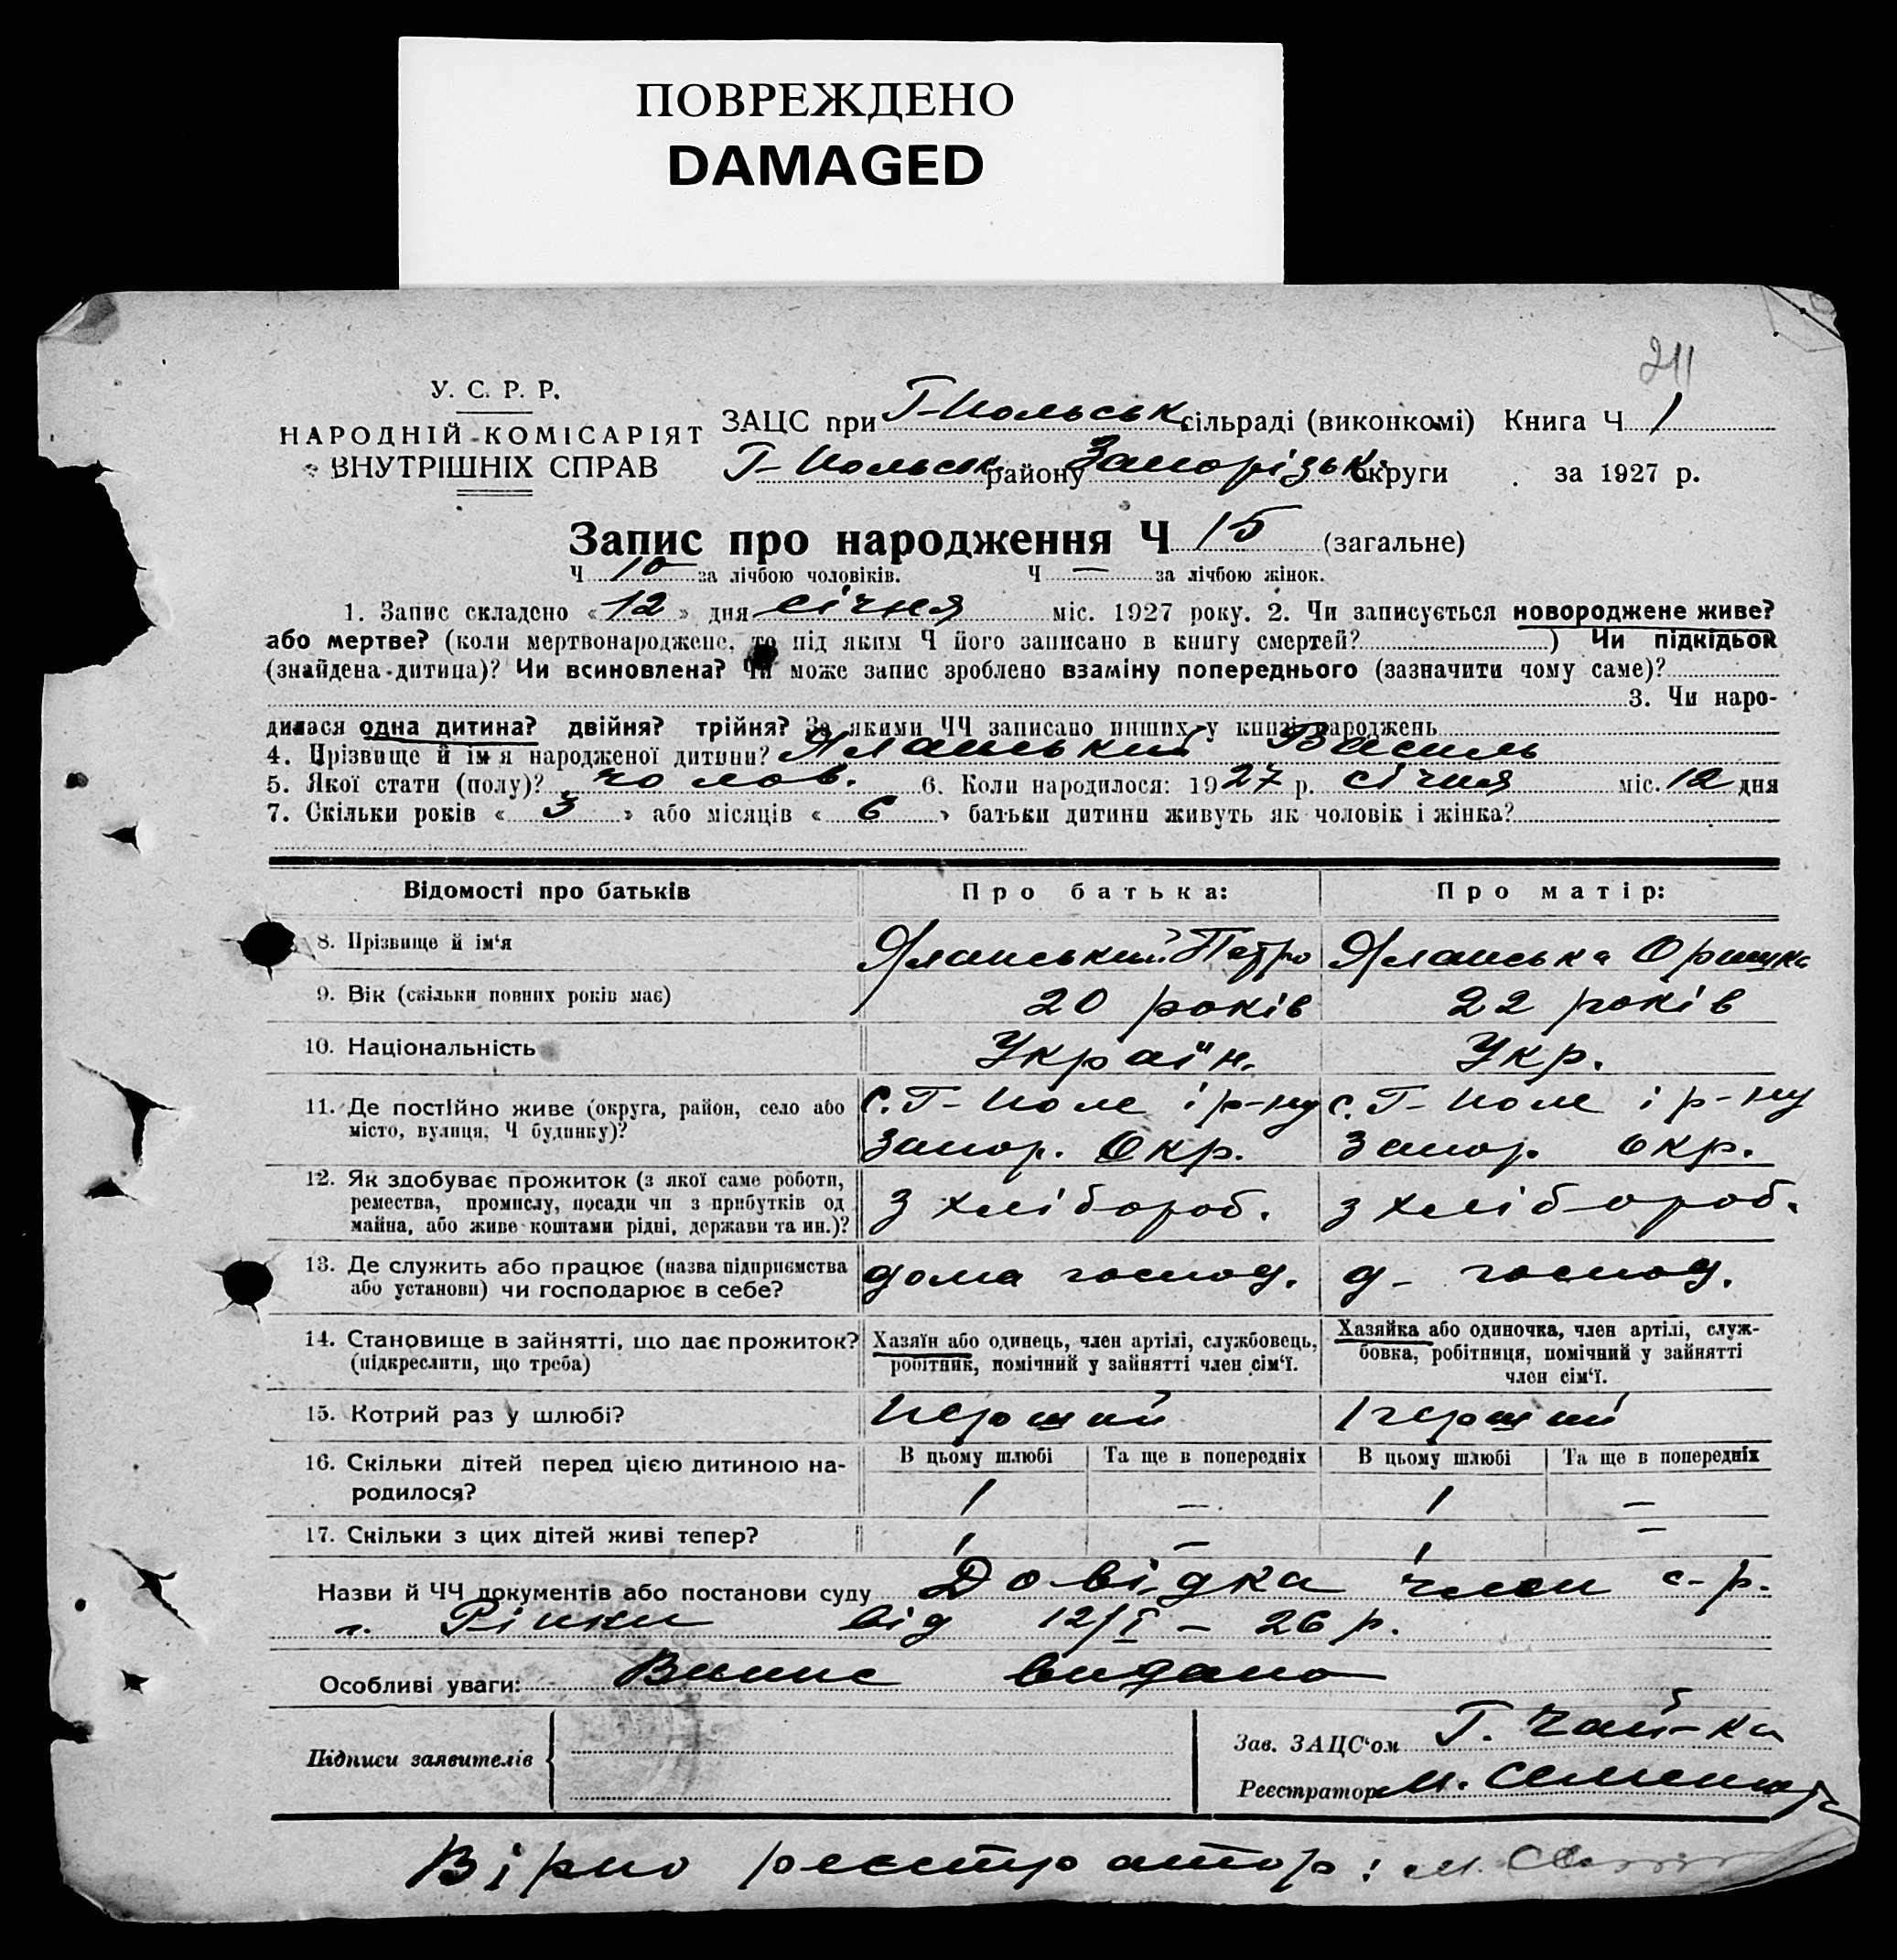 ПОВРЕЖДЕНО
DAMAGED
211
У. С. Р. Р.
НАРОДНІЙ КОМІСАРІЯТ
ВНУТРІШНІХ СПРАВ
ЗАЦС при Г-Польськ. сільраді (виконкомі) Книга Ч 1
Г-Польськ. району Запорізьк. округи за 1927 р.
Запис про народження Ч 15 (загальне)
Ч 10 за лічбою чоловіків. Ч — за лічбою жінок.
1. Запис складено «12» дня січня міс. 1927 року. 2. Чи записується новороджене живе?
або мертве? (коли мертвонароджене, то під яким Ч його записано в книгу смертей? ) Чи підкідьок
(знайдена дитина)? Чи всиновлена? Чи може запис зроблено взаміну попереднього (зазначити чому саме)?
3. Чи наро-
дилася одна дитина? двійня? трійня? За якими ЧЧ записано инших у книзі народжень
4. Прізвище й імя народженої дитини? Яланський Василь
5. Якої стати (полу)? чолов. 6. Коли народилося: 1927 р. січня міс. 12 дня
7. Скільки років « 3 » або місяців « 6 » батьки дитини живуть як чоловік і жінка?
Відомості про батьків Про батька: Про матір:
8. Прізвище й ім‘я Яланський Петро Яланська Оришка
9. Вік (скільки повних років має) 20 років 22 років
10. Національність Україн. Укр.
11. Де постійно живе (округа, район, село або місто, вулиця, Ч будинку)? с. Г-Поле і р-ну с. Г-Поле і р-ну
Запор. Окр. Запор. окр.
12. Як здобуває прожиток (з якої саме роботи,
ремества, промислу, посади чи з прибутків од
майна, або живе коштами рідні, держави та ин.)? З хлібороб. З хлібороб.
13. Де служить або працює (назва підприємства
або установи) чи господарює в себе? дома господ. д- господ.
14. Становище в зайнятті, що дає прожиток?
(підкреслити, що треба)
Хазяїн або одинець, член артілі, службовець,
робітник, помічний у зайнятті член сім‘ї.
Хазяйка або одиночка, член артілі, служ-
бовка, робітниця, помічний у зайнятті
член сім‘ї.
15. Котрий раз у шлюбі? перший перший
16. Скільки дітей перед цією дитиною на-
родилося?
В цьому шлюбі Та ще в попередніх В цьому шлюбі Та ще в попередніх
1 — 1 —
17. Скільки з цих дітей живі тепер? 1 — 1 —
Назви й ЧЧ документів або постанови суду Довідка член с-р.
г. Ріпки від 12/I – 26 р.
Особливі уваги: Випис видано
Підписи заявителів
Зав. ЗАЦС‘ом Г. Чайка
Реєстратор М.
Вірно реєстратор: М.